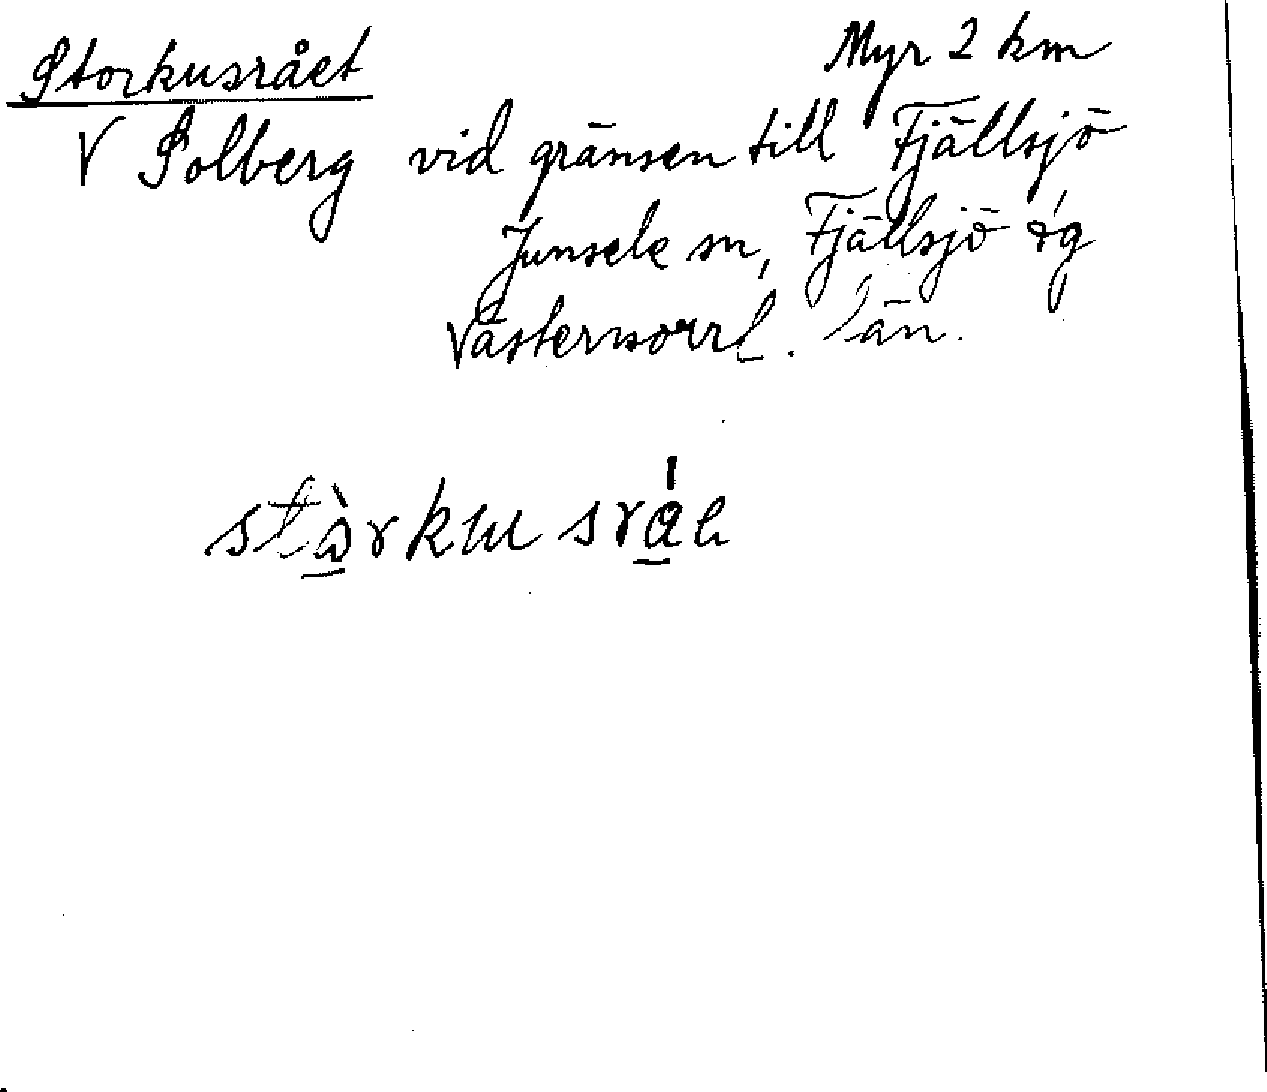 Storkusrået Myr 2 km
V Solberg vid gränsen till Fjällsjö
Junsele sn, Fjällsjö tg
Västernorrl. län.